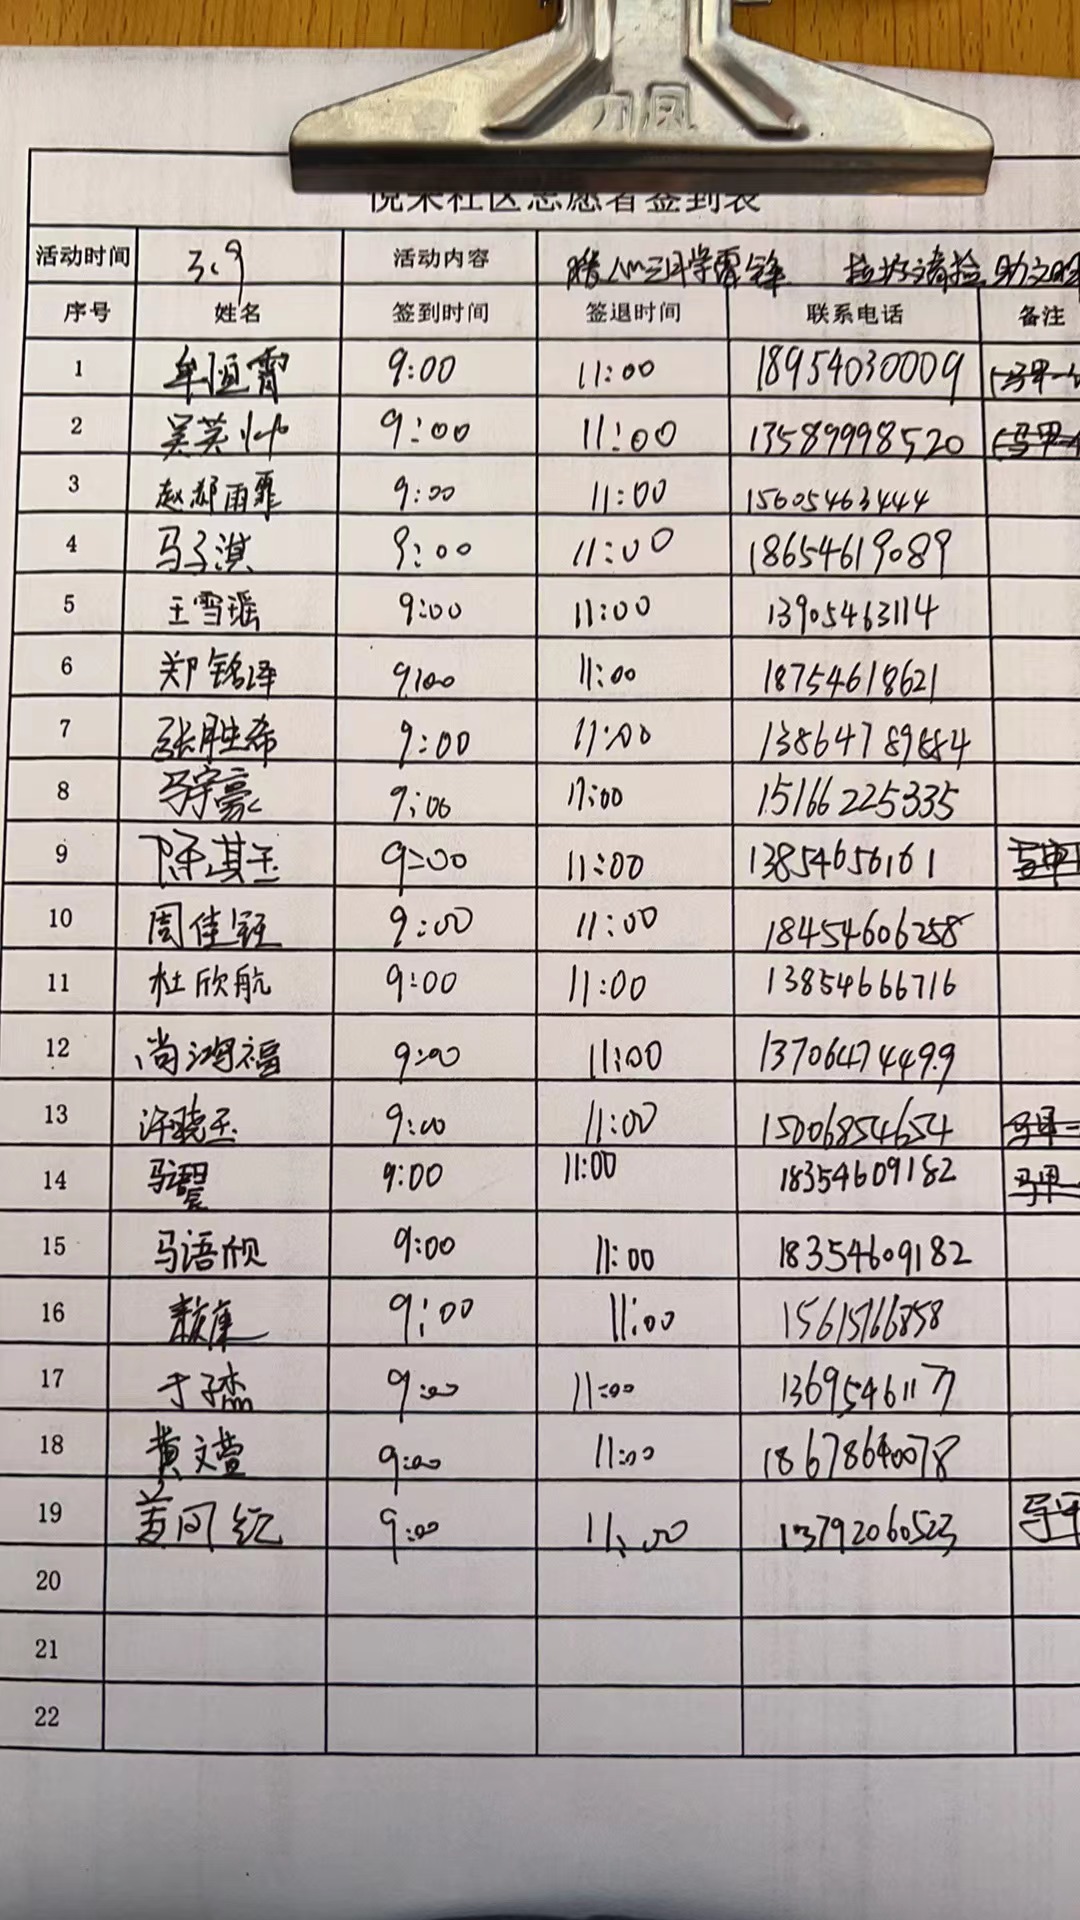 力风
悦来社区志愿者签到表
活动时间 3.9 活动内容 暖人心三月学雷锋 垃圾清捡 助文明
序号 姓名 签到时间 签退时间 联系电话 备注
1 牟恒霄 9:00 11:00 18954030009 (马甲一
2 吴英帅 9:00 11:00 13589998520 (马甲一
3 赵郝雨霏 9:00 11:00 15605463444
4 马子淇 9:00 11:00 18654619089
5 王雪瑶 9:00 11:00 13905463114
6 郑铭泽 9:00 11:00 18754618621
7 张胜希 9:00 11:00
8 马宇豪 9:00 11:00 15166225335
9 陈淇玉 9:00 11:00 13854656161 马甲
10 周佳钰 9:00 11:00 18454606258
11 杜欣航 9:00 11:00 13854666716
12 尚鸿福 9:00 11:00 13706474499
13 许晓玉 9:00 11:00 15006854654 马甲一
14 9:00 11:00 18354609182 马甲一
15 马语欣 9:00 11:00 18354609182
16 9:00 11:00 15615766858
17 于子杰 9:00 11:00 13695461177
18 黄文萱 9:00 11:00 18678640078
19 9:00 11:00 13792060523 马甲
20
21
22